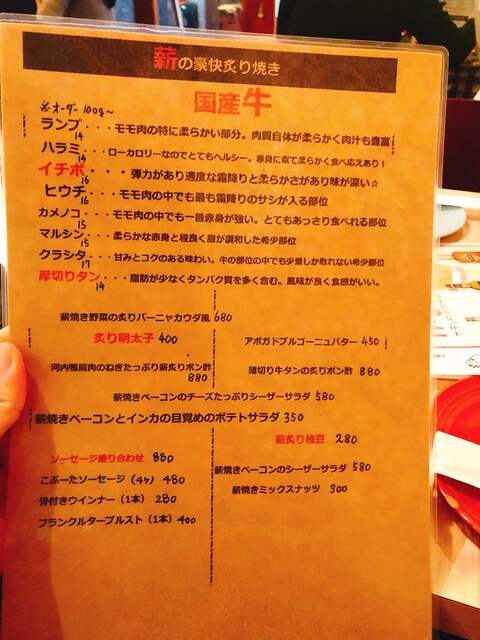 薪の豪快炙り焼き
国産牛
※オーダー 100g〜
ランプ・・・モモ肉の特に柔らかい部分。肉質自体が柔らかく肉汁も豊富
14
ハラミ・・・ローカロリーなのでとてもヘルシー。赤身に似て柔らかく食べ応えあり!
14
イチボ・・・弾力があり適度な霜降りと柔らかさがあり味が深い☆
16
ヒウチ・・・モモ肉の中でも最も霜降りのサシが入る部位
16
カメノコ・・・モモ肉の中でも一番赤身が強い。とてもあっさり食べれる部位
15
マルシン・・・柔らかな赤身と程良く脂が調和した希少部位
15
クラシタ・・・甘みとコクのある味わい。牛の部位の中でも少量しか取れない希少部位
17
厚切りタン・・・脂肪が少なくタンパク質を多く含む。風味が良く食感がいい。
14
薪焼き野菜の炙りバーニャカウダ風 680
炙り明太子 400
アボガドブルゴーニュバター 450
河内鴨肩肉のねぎたっぷり薪炙りポン酢
880
薄切り牛タンの炙りポン酢 880
薪焼きベーコンのチーズたっぷりシーザーサラダ 580
薪焼きベーコンとインカの目覚めのポテトサラダ 350
薪炙り枝豆 280
ソーセージ盛り合わせ 880
薪焼きベーコンのシーザーサラダ 580
こぶーたソーセージ(4ケ) 480
薪焼きミックスナッツ 300
骨付きウインナー(1本) 280
フランクルターブルスト(1本) 400